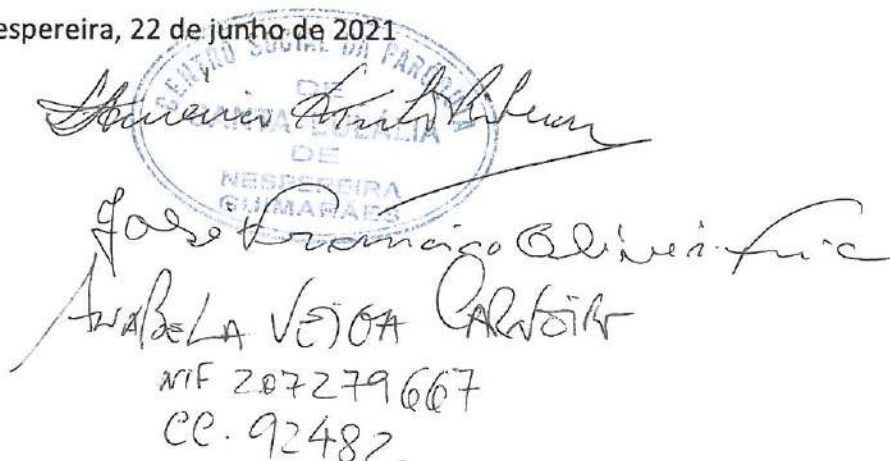 espereira, 22 de junho de 2021
CENTRO SOCIAL DA PARÓQUIA
DE
SANTA EULÁLIA
DE
NESPEREIRA
GUIMARÃES
José Francisco Oliveira
ANABELA VEIGA
NIF 207279667
CC. 92482